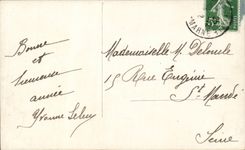 Bonne
et
heureuse
année
Yvonne
Mademoiselle M.
15 Rue Eugine
St Mandé
Seine
MARNE